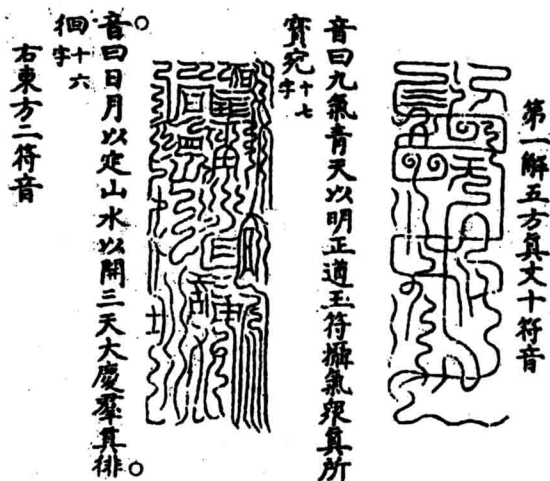 第一解五方真文十符音
音曰九氣青天以明正道玉符攝氣眾真所
寶宛十七字
音曰日月以定山水以開三天大慶羣真徘
徊十六字
右東方二符音